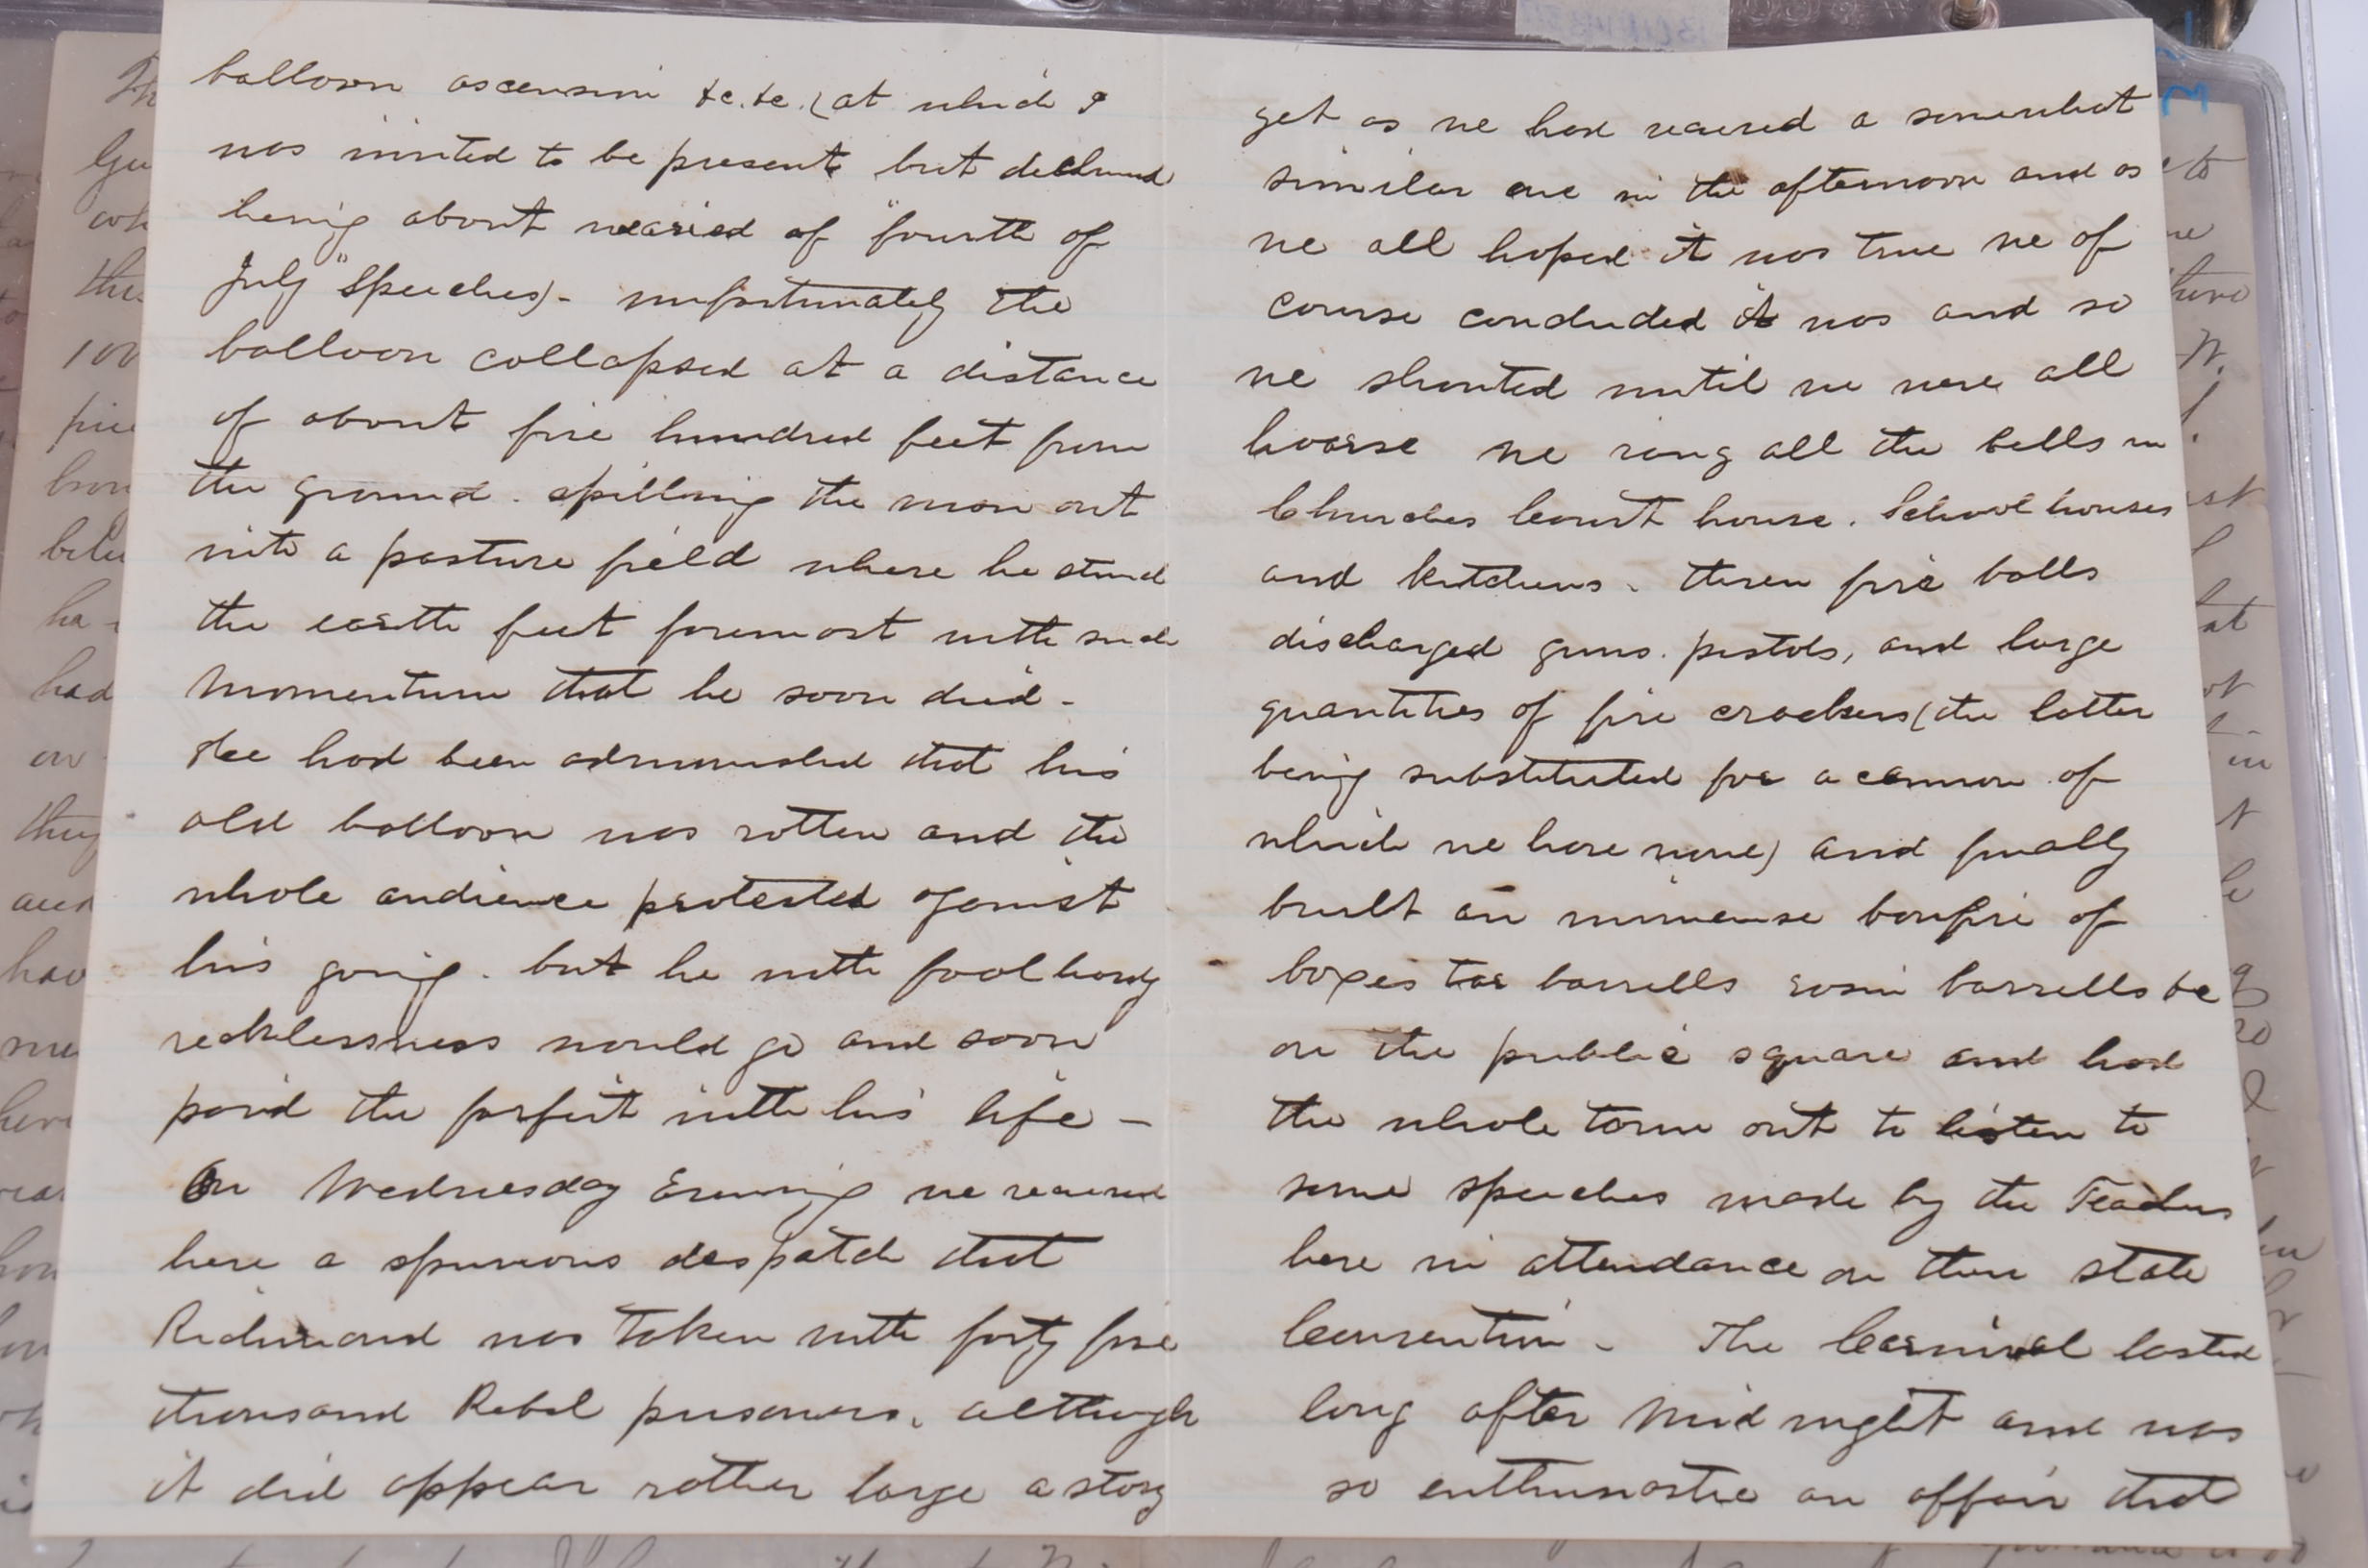 balloon ascension &c. &c. (at which I
was invited to be present but declined
being about wearied of "fourth of
July" speeches) - unfortunately the
balloon collapsed at a distance
of about five hundred feet from
the ground. spilling the man out
into a pasture field where he struck
the earth feet foremost with such
momentum that he soon died -
He had been admonished that his
old balloon was rotten and the
whole audience protested against
his going. but he with foolhardy
recklessness would go and soon
paid the forfeit with his life -
On Wednesday Evening we received
here a spurious despatch that
Richmond was taken with forty five
thousand Rebel prisoners, although
it did appear rather large a story
yet as we had received a somewhat
similar one in the afternoon and as
we all hoped it was true we of
course concluded it was and so
we shouted until we were all
hoarse we rang all the bells in
Churches Court house. School houses
and kitchens - threw fire balls
discharged guns. pistols, and large
quantities of fire crackers (the latter
being substituted for a cannon of
which we have none) and finally
built an immense bonfire of
boxes tar barrells rosin barrells &c
on the public square and had
the whole town out to listen to
some speeches made by the Teachers
here in attendance on their state
Convention - The Carnival lasted
long after mid night and was
so enthusiastic an affair that